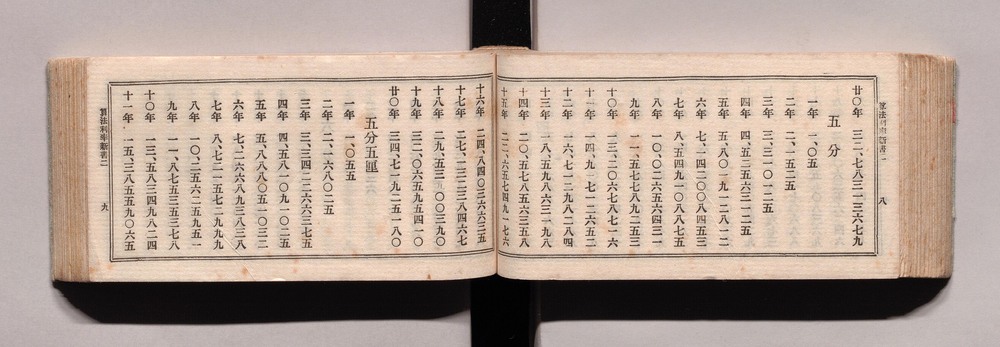 算法利率新書二
八
廿〇年 三二、七八三一三六七九
五分
一年 一、〇五
二年 二、一五二五
三年 三、三一〇一二五
四年 四、五二五六三一二五
五年 五、八〇一九一二八一二
六年 七、一四二〇〇八四五三
七年 八、五四九一〇八八七五
八年 一〇、〇二六五六四三一
九年 一一、五七七八九二五三
十〇年 一三、二〇六七八七一六
十一年 一四、九一七一二六五二
十二年 一六、七一二九八二八四
十三年 一八、五九八六三一九八
十四年 二〇、五七八五六三五八
十五年 二二、六五七四九一七六
十六年 二四、八四〇三六六三五
十七年 二七、一三二三八四六七
十八年 二九、五三九〇〇三九〇
十九年 三二、〇六五九五四一〇
廿〇年 三四、七一九二五一八〇
五分五厘
一年 一、〇五五
二年 二、一六八〇二五
三年 三、三四二二六六三七五
四年 四、五八一〇九一〇二五
五年 五、八八八〇五一〇三二
六年 七、二六六八九三八三八
七年 八、七二一五七二九九九
八年 一〇、二五六二五九五一
九年 一一、八七五三五三七八
十〇年 一三、五八三四九八二四
十一年 一五、三八五五九〇六五
算法利率新書二
九